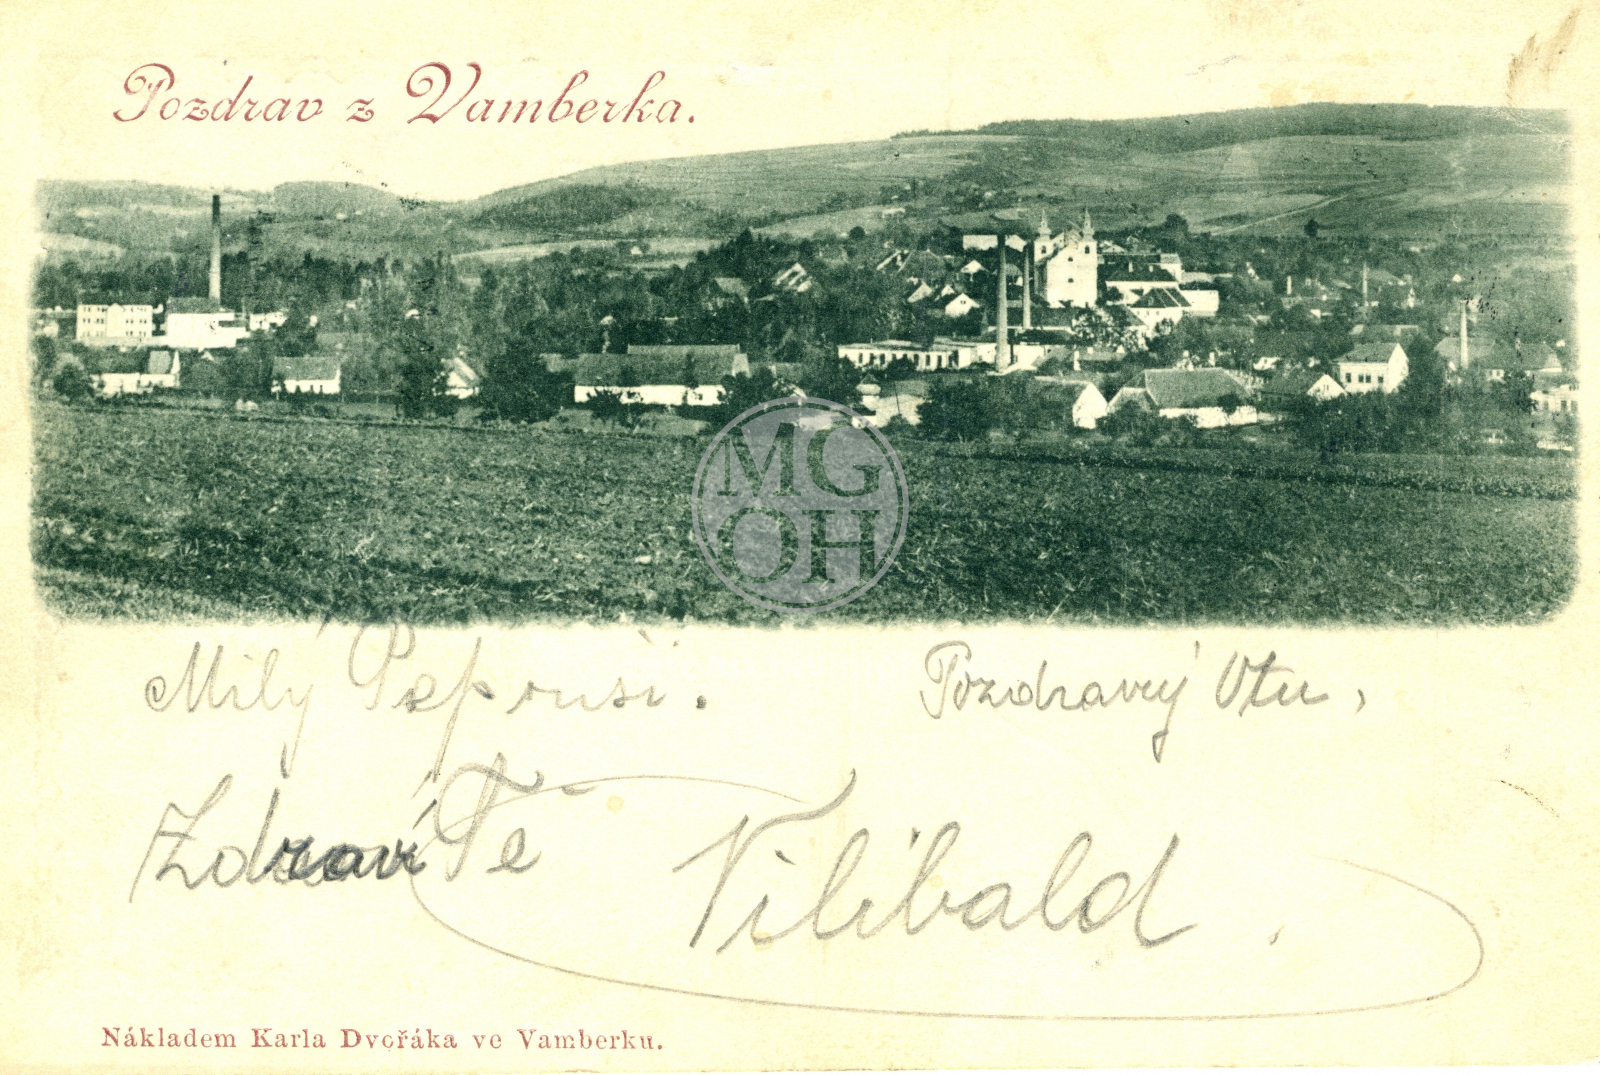 Pozdrav z Vamberka.
MG
OH
Milý Pepouši. Pozdravuj Otu,
Zdraví Tě Vilibald.
Nákladem Karla Dvořáka ve Vamberku.